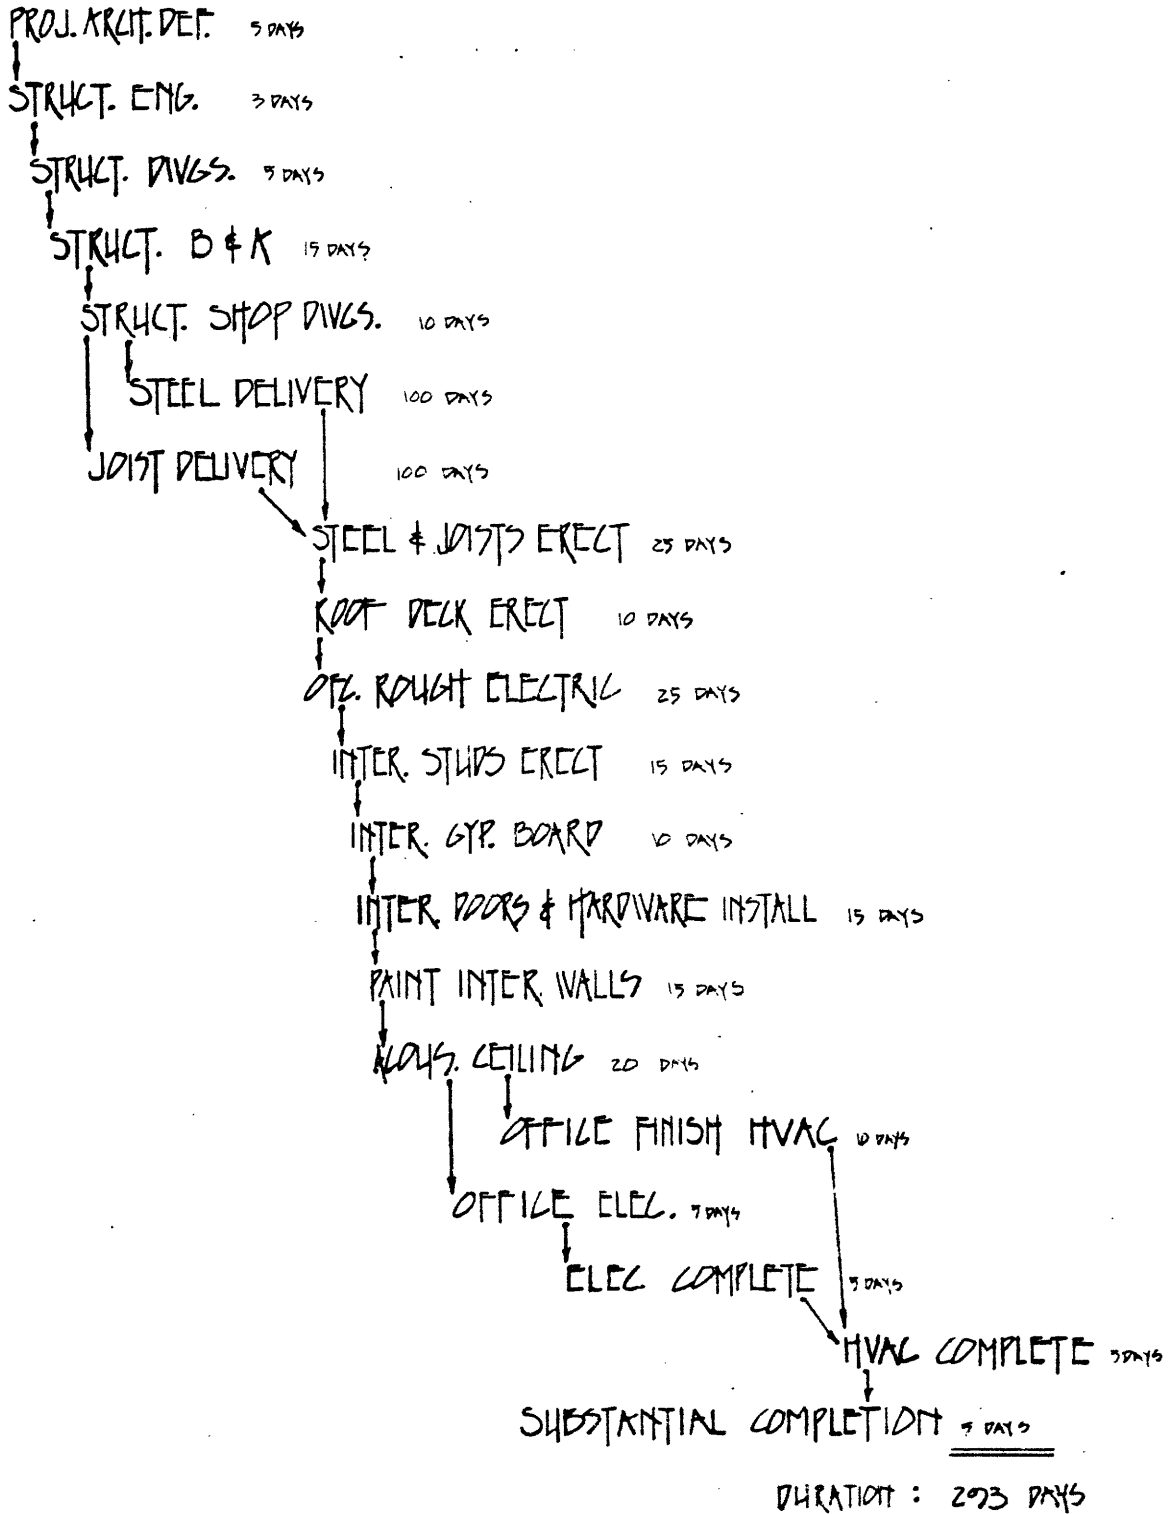 PROJ. ARCH. DEF. 5 DAYS
STRUCT. ENG. 3 DAYS
STRUCT. DWGS. 5 DAYS
STRUCT. B & A 15 DAYS
STRUCT. SHOP DWGS. 10 DAYS
STEEL DELIVERY 100 DAYS
JOIST DELIVERY 100 DAYS
STEEL & JOISTS ERECT 25 DAYS
ROOF DECK ERECT 10 DAYS
OFC. ROUGH ELECTRIC 25 DAYS
INTER. STUDS ERECT 15 DAYS
INTER. GYP. BOARD 10 DAYS
INTER. DOORS & HARDWARE INSTALL 15 DAYS
PAINT INTER. WALLS 15 DAYS
ACOUS. CEILING 20 DAYS
OFFICE FINISH HVAC 10 DAYS
OFFICE ELEC. 5 DAYS
ELEC COMPLETE 5 DAYS
HVAC COMPLETE 5 DAYS
SUBSTANTIAL COMPLETION 5 DAYS
DURATION : 293 DAYS